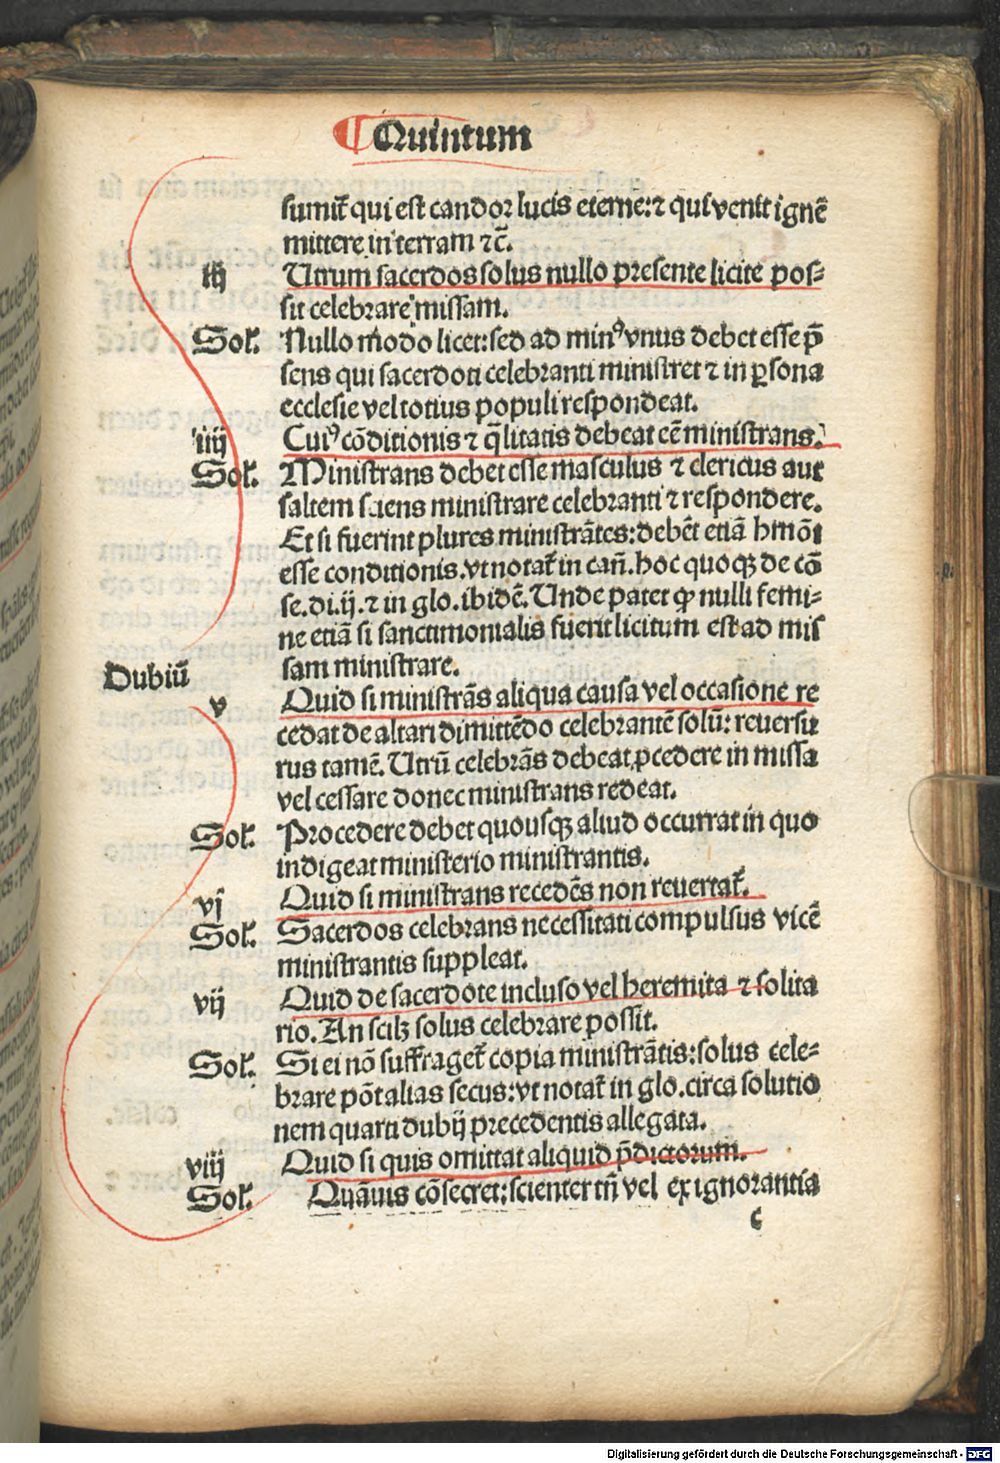 Quintum
sumit᷑ qui est candoꝛ lucis eterne:⁊ qui venit ignē
mittere in terram ⁊c̄.
iij Utrum sacerdos solus nullo presente licite pos⸗
sit celebꝛare missam.
Sol'. Nullo modo licet:sed ad minꝰ vnus debet esse p̄
sens qui sacerdoti celebꝛanti ministret ⁊ in ꝑsona
ecclesie vel totius populi respondeat.
iiij Cuiꝰ cōditionis ⁊ q̄litatis debeat eē ministrans.
Sol'. Ministrans debet esse masculus ⁊ clericus aut
saltem sciens ministrare celebꝛanti ⁊ respondere.
Et si fuerint plures ministrātes:debēt etiā hmōi
esse conditionis.vt notat᷑ in cañ.hoc quoqꝫ de cō
se.di.ij.⁊ in glo.ibidē.Unde patet ꝙ nulli femi⸗
ne etiā si sanctimonialis fuerit licitum est ad mis
sam ministrare.
Dubiū
v Quid si ministrās aliqua causa vel occasione re
cedat de altari dimittēdo celebꝛantē solū: reuersu
rus tamē.Utrū celebꝛās debeat ꝓcedere in missa
vel cessare donec ministrans redeat.
Sol'. Pꝛocedere debet quousqꝫ aliud occurrat in quo
indigeat ministerio ministrantis.
vi Quid si ministrans recedēs non reuertat᷑.
Sol'. Sacerdos celebꝛans necessitati compulsus vicē
ministrantis suppleat.
vij Quid de sacerdote incluso vel heremita ⁊ solita
rio.An scilꝫ solus celebꝛare possit.
Sol'. Si ei nō suffraget᷑ copia ministrātis:solus cele⸗
bꝛare pōt alias secus:vt notat᷑ in glo.circa solutio
nem quarti dubij precedentis allegata.
viij Quid si quis omittat aliquid p̄dictoꝛum.
Sol'. Quāuis cōsecret:scienter tn̄ vel ex ignoꝛantia
c
Digitalisierung gefördert durch die Deutsche Forschungsgemeinschaft - DFG